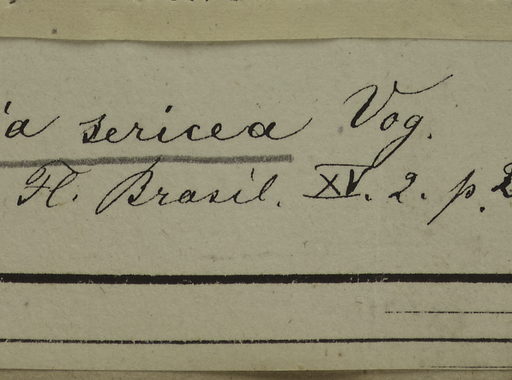 ia sericea Vog.
Fl. Brasil. XV. 2. p. 2